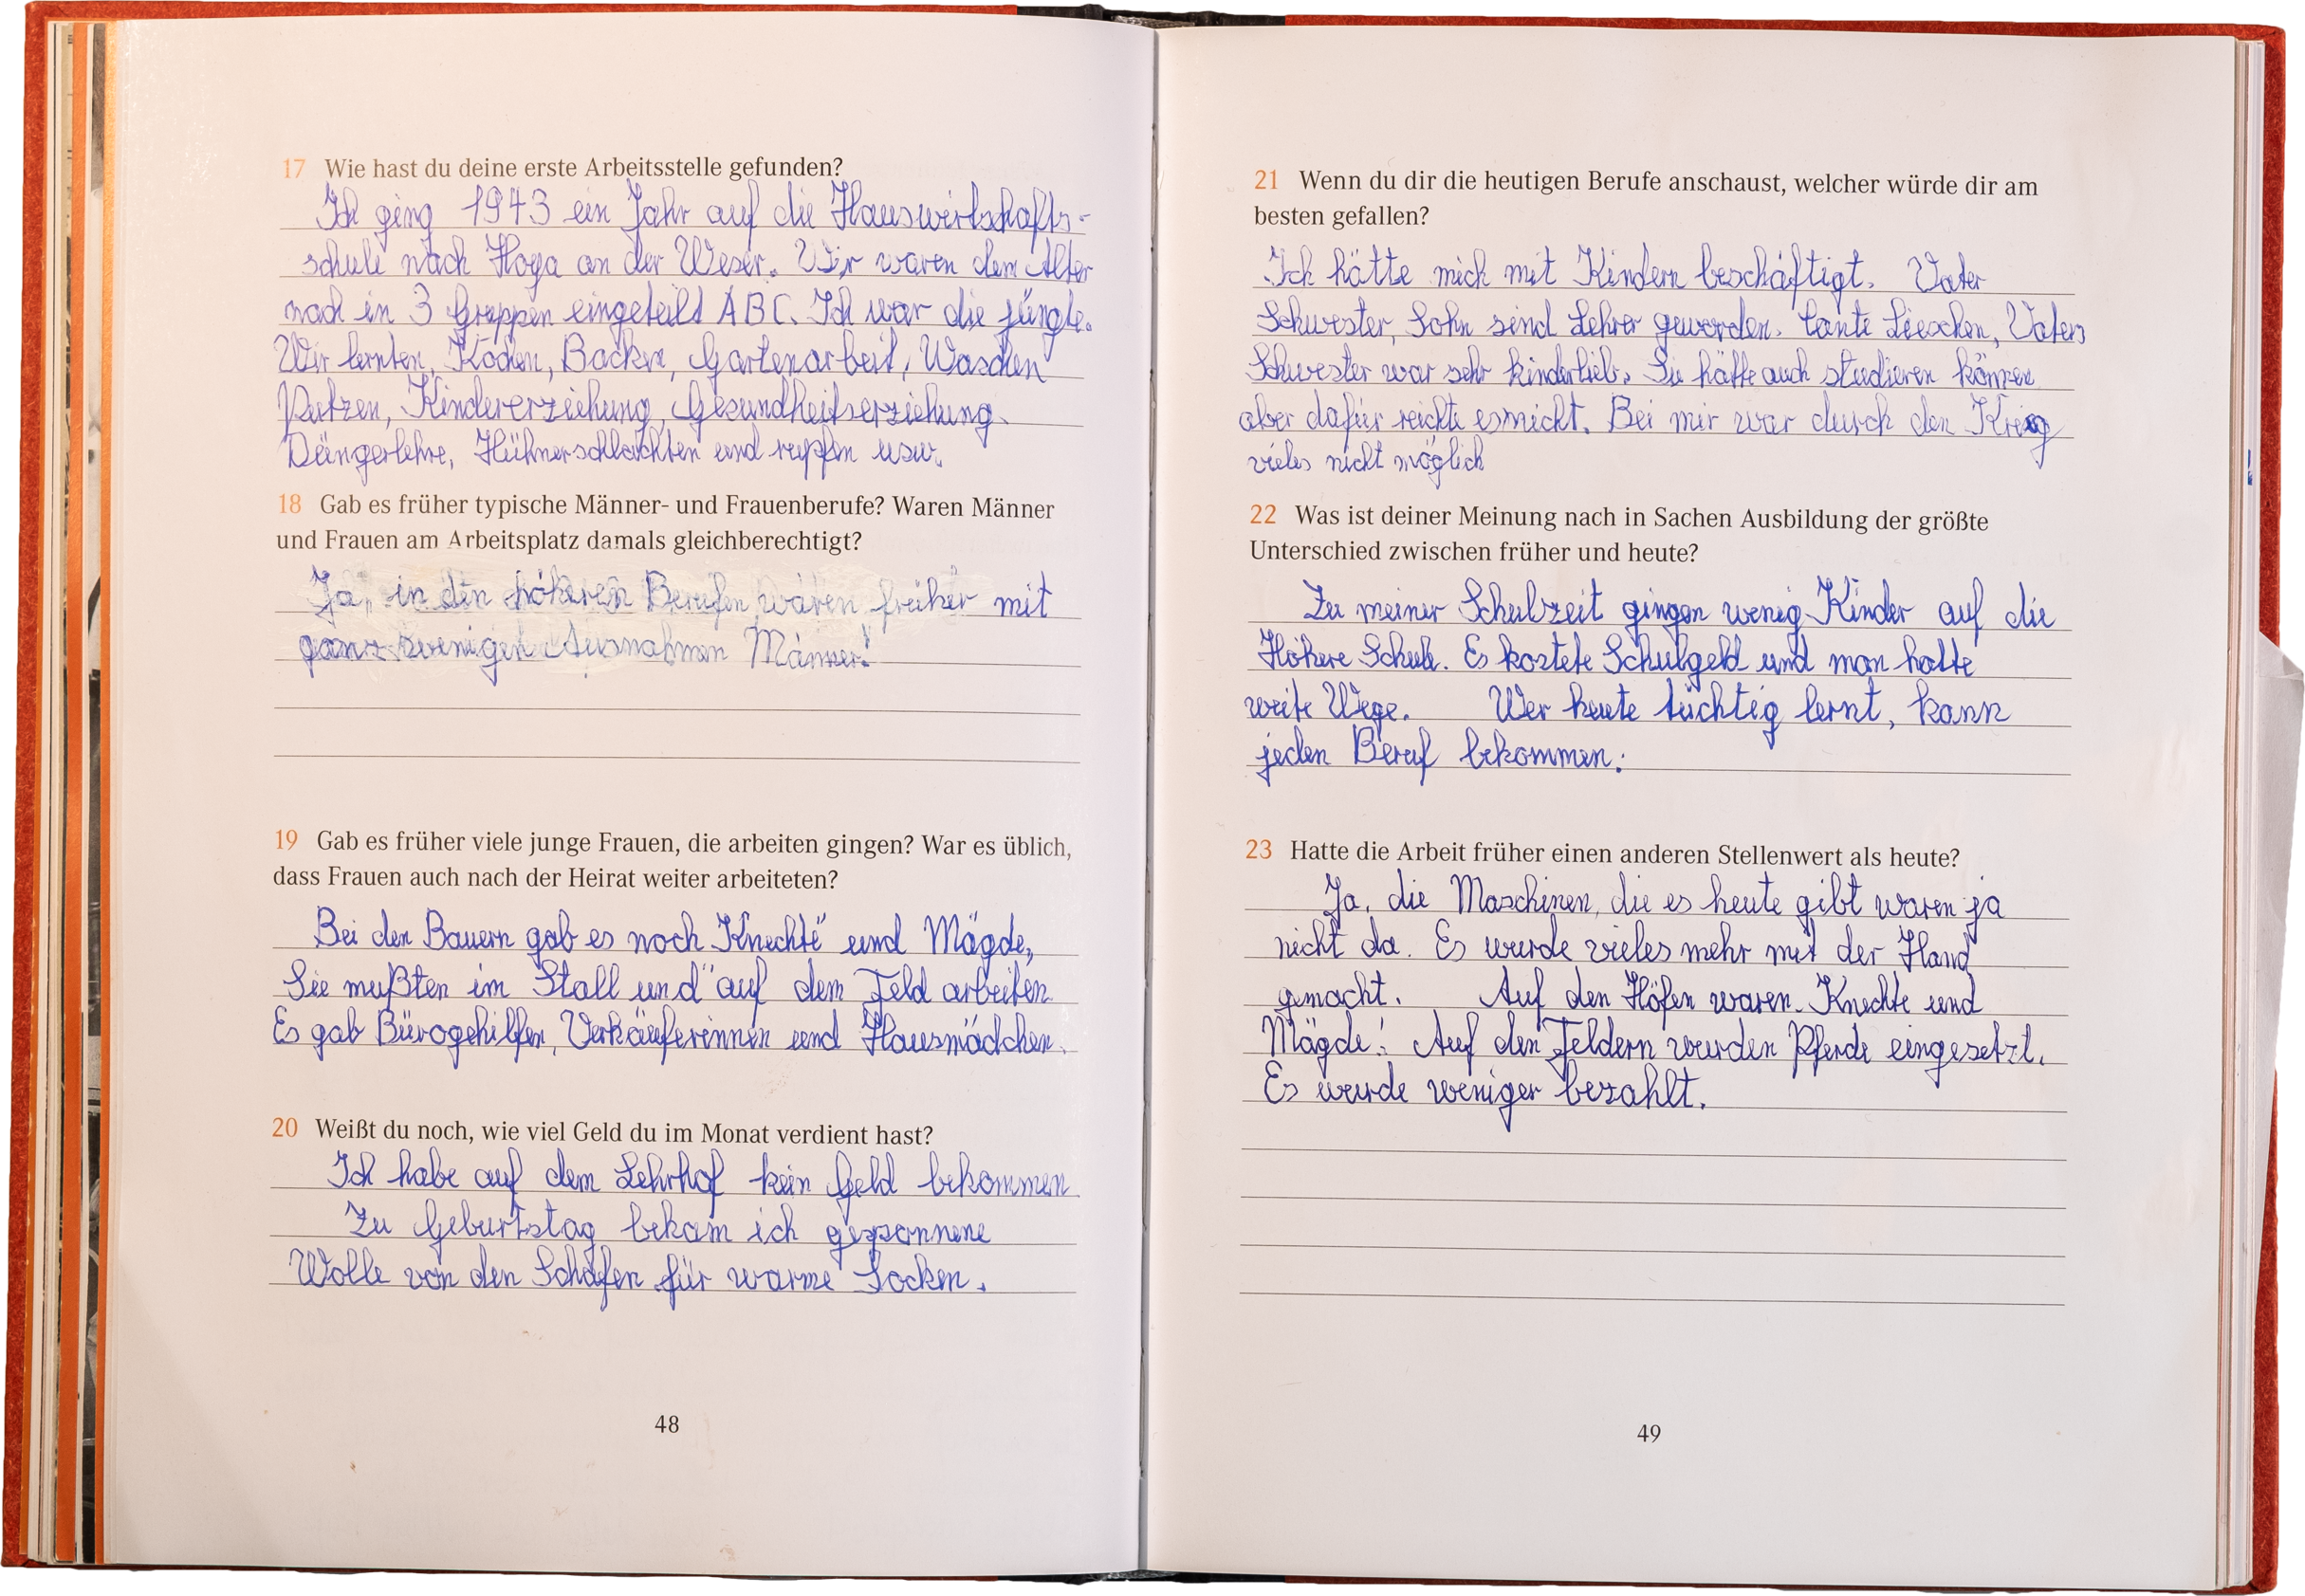 17 Wie hast du deine erste Arbeitsstelle gefunden?
Ich ging 1943 ein Jahr auf die Hauswirtschafts-
schule nach Hoya an der Weser. Wir waren dem Alter
nach in 3 Gruppen eingeteilt A B C. Ich war die jüngste.
Wir lernten, Kochen, Backen, Gartenarbeit, Waschen
Putzen, Kindererziehung, Gesundheitserziehung.
Düngerlehre, Hühnerschlachten und rupfen usw.
18 Gab es früher typische Männer- und Frauenberufe? Waren Männer
und Frauen am Arbeitsplatz damals gleichberechtigt?
Ja, in den höheren Berufen waren früher mit
ganz wenigen Ausnahmen Männer!
19 Gab es früher viele junge Frauen, die arbeiten gingen? War es üblich,
dass Frauen auch nach der Heirat weiter arbeiteten?
Bei den Bauern gab es noch Knechte und Mägde,
Sie mußten im Stall und auf dem Feld arbeiten
Es gab Bürogehilfen, Verkäuferinnen und Hausmädchen.
20 Weißt du noch, wie viel Geld du im Monat verdient hast?
Ich habe auf dem Lehrhof kein Geld bekommen
Zu Geburtstag bekam ich gesponnene
Wolle von den Schafen für warme Socken.
48
21 Wenn du dir die heutigen Berufe anschaust, welcher würde dir am
besten gefallen?
Ich hätte mich mit Kindern beschäftigt. Vater
Schwester, Sohn sind Lehrer geworden. Tante Lieschen, Vaters
Schwester war sehr kinderlieb. Sie hätte auch studieren können
aber dafür reichte es nicht. Bei mir war durch den Krieg
vieles nicht möglich
22 Was ist deiner Meinung nach in Sachen Ausbildung der größte
Unterschied zwischen früher und heute?
Zu meiner Schulzeit gingen wenig Kinder auf die
Höhere Schule. Es kostete Schulgeld und man hatte
weite Wege. Wer heute tüchtig lernt, kann
jeden Beruf bekommen.
23 Hatte die Arbeit früher einen anderen Stellenwert als heute?
Ja, die Maschinen, die es heute gibt waren ja
nicht da. Es wurde vieles mehr mit der Hand
gemacht. Auf den Höfen waren Knechte und
Mägde! Auf den Feldern wurden Pferde eingesetzt.
Es wurde weniger bezahlt.
49